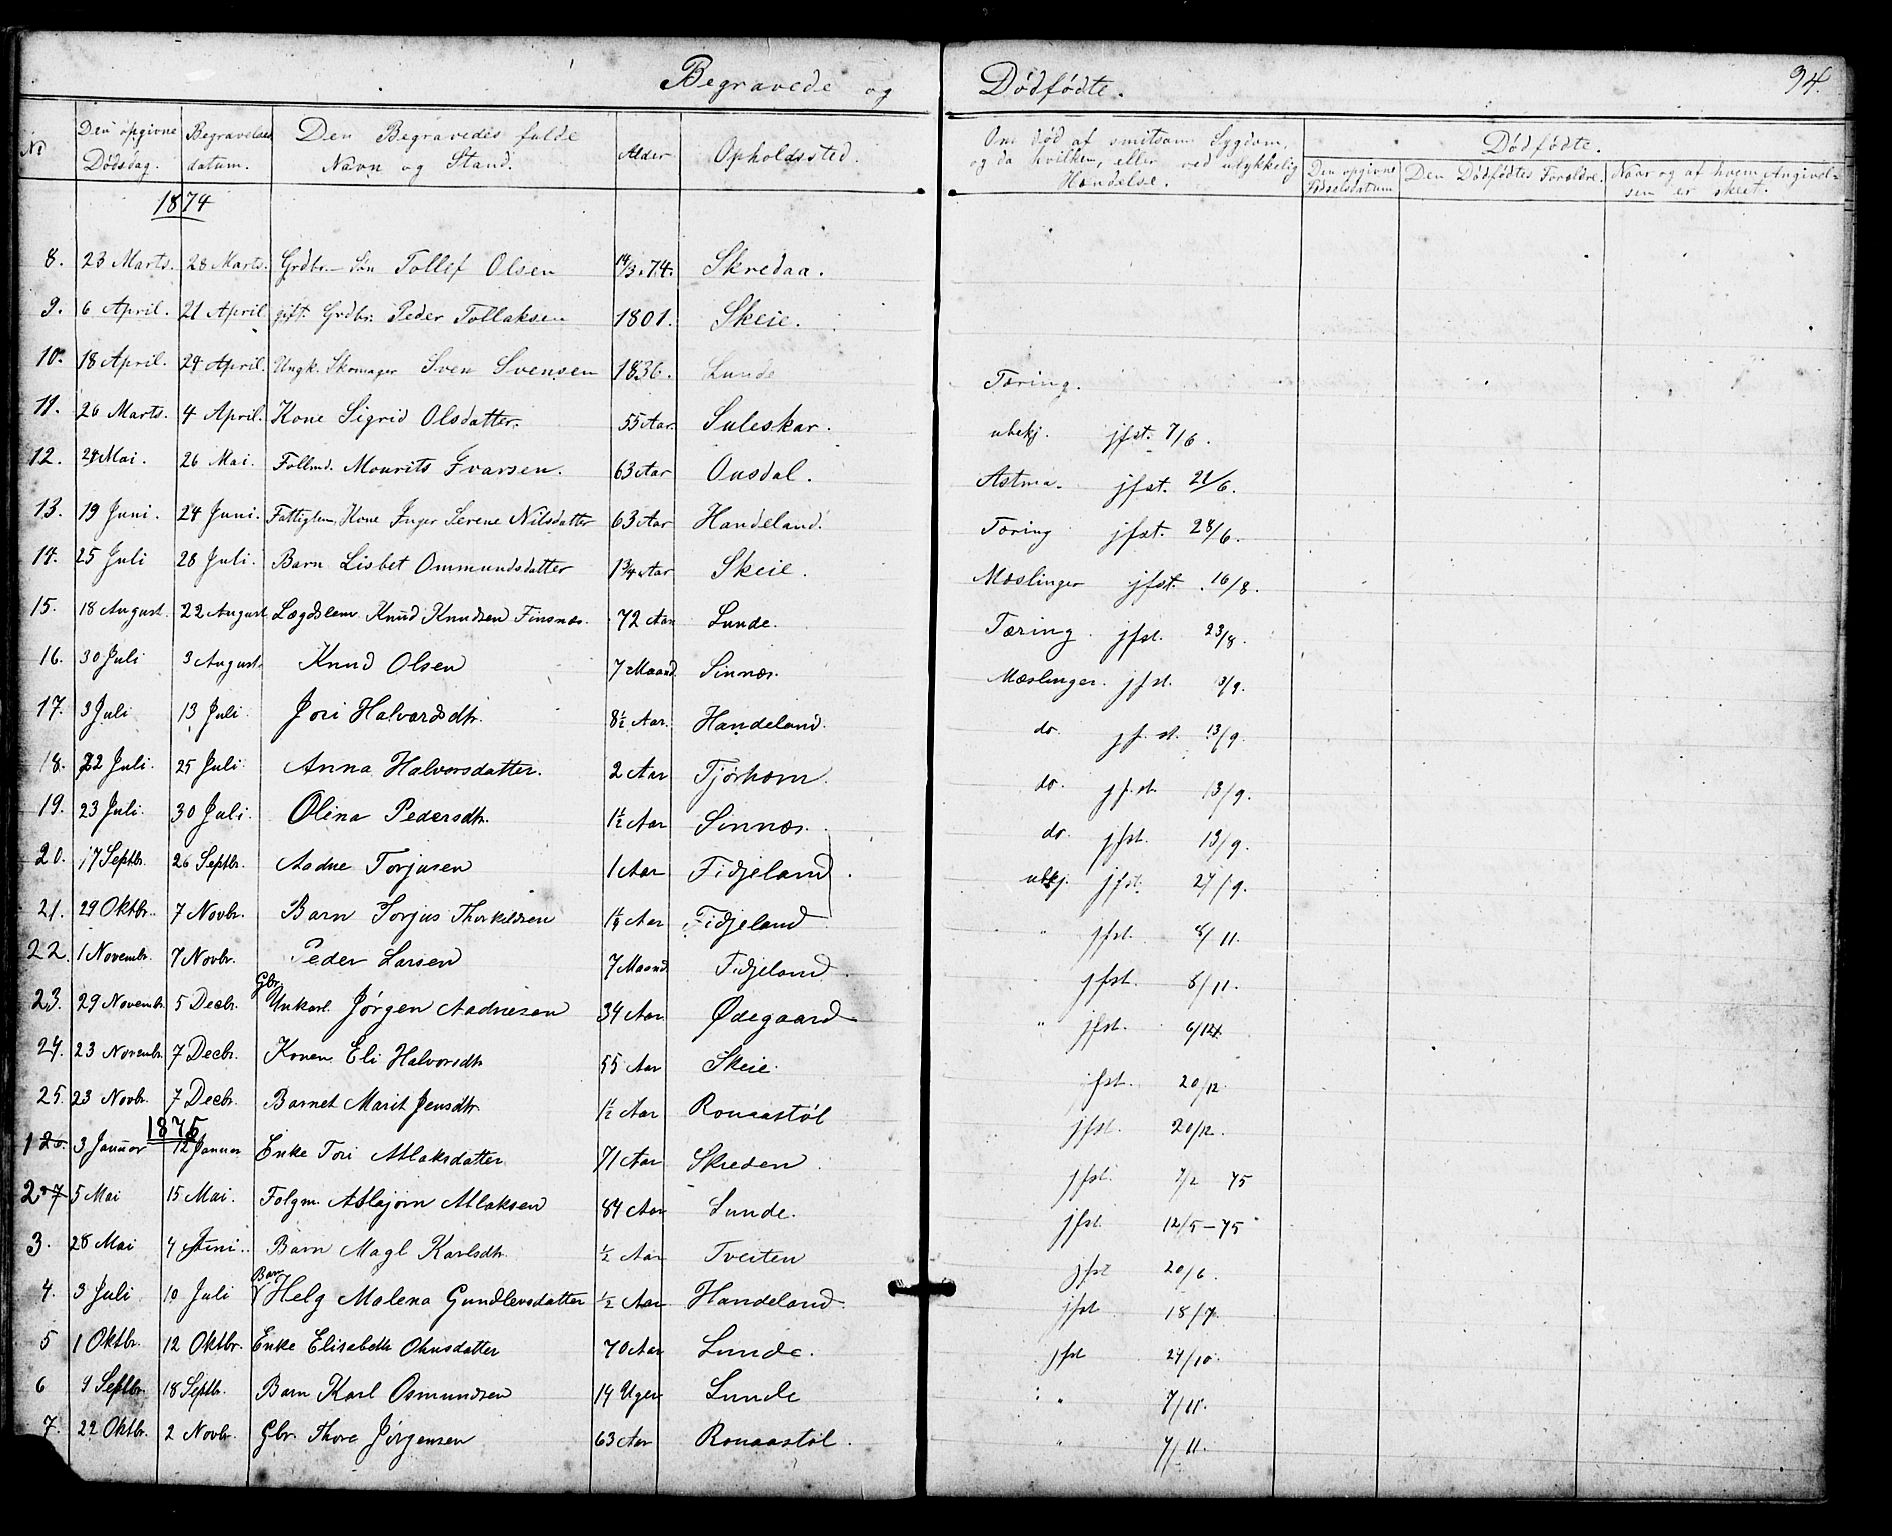 Begravede og Dødfødte. 94.
No Den opgivne Dødsdag. Begravelses datum. Den Begravedes fulde Navn og Stand. Alder Opholdssted. Om død af smitsom Sygdom, og da hvilken, eller ved ulykkelig Hændelse. Dødfødte. Den opgivne Fødselsdatum Den Dødfødtes Forældre. Naar og af hvem Angivelsen er skeet.
1874
8. 23 Marts. 28 Marts. Grdbr.- Søn Tollef Olsen 14/3. 74. Skredaa.
9. 6 April. 21 April gift. Grdbr. Peder Tollaksen 1801. Skeie.
10. 18 April. 24 April. Ungk. Skomager Sven Svensen 1836. Lunde Tæring.
11. 26 Marts. 4 April. Kone Sigrid Olsdatter. 55 Aar. Suleskar. ubekj. jfst. 7/6.
12. 24 Mai. 26 Mai. Follmd. Mourits Ivarsen. 63 Aar Ousdal. Astma. jfst. 21/6.
13. 19 Juni. 24 Juni. Fattiglem, Kone Inger Serene Nilsdatter 63 Aar Handeland. Tæring jfst. 28/6.
14. 25 Juli 28 Juli. Barn Lisbet Ommundsdatter 1 3/4 Aar Skeie. Mæslinger jfst. 16/8.
15. 18 August. 22 August Lægdslem Knud Knudsen Finsnæs. 72 Aar Lunde. Tæring. jfst. 23/8.
16. 30 Juli 3 August. Knud Olsen 7 Maand Sinnæs. Mæslinger. jfst. 3/9.
17. 3 Juli 13 Juli. Jori Halvardsdtr. 8 1/2 Aar. Handeland. do. jfst. 13/9.
18. 22 Juli. 25 Juli. Anna Halvorsdatter. 2 Aar Tjørhom. do. jfst. 13/9.
19. 23 Juli. 30 Juli. Olina Pedersdtr. 1 1/2 Aar Sinnæs. do. jfst. 13/9.
20. 17 Septbr. 26 Septbr. Asdne Torjusen 1 Aar Fidjeland. ubkj. jfst. 27/9.
21. 29 Oktbr. 7 Novbr. Barn Torjus Thorkildsen Aar Fidjeland " jfst. 8/11.
22. 1 Novembr. 7 Novbr. Peder Larsen 7 Maand. Fidjeland. jfst. 8/11.
23. 29 Novembr 5 Decbr. Gbr. Unkarl. Jørgen Aadnesen 34 Aar Ødegaard " jfst. 6/12.
24. 23 Novembr. 7 Decbr. Konen Eli Halvorsdtr 55 Aar Skeie. jfst. 20/12
25. 23 Novbr. 7 Decbr. Barnet Marit Jensdtr 1 1/2 Aar Ronaastøl jfst. 20/12.
1875
1 26. 3 Januar 12 Januar Enke Tori Atlaksdatter 71 Aar Skreden jfst. 7/2 75
2 27 5 Mai 15 Mai. Folgm. Asbjørn Atlaksen 84 Aar Lunde. jfst 12/5-75
3. 28 Mai 4 Juni. Barn Magl Karlsdtr. 1/2 Aar Tveiten jfst 20/6.
4. 3 Juli 10 Juli Barn Helg Malena Gundleivsdatter 1/2 Aar Handeland. jfst 18/7.
5 1 Oktbr. 12 Oktbr. Enke Elisabeth Ohnsdatter 70 Aar Lunde. jfst 24/10.
6 9 Septbr. 18 Septbr. Barn Karl Osmundsen 14 Uger Lunde " 7/11.
7. 22 Oktbr. 2 Novbr. Gbr. Thore Jørgensen 63 Aar Ronaastøl. " 7/11.